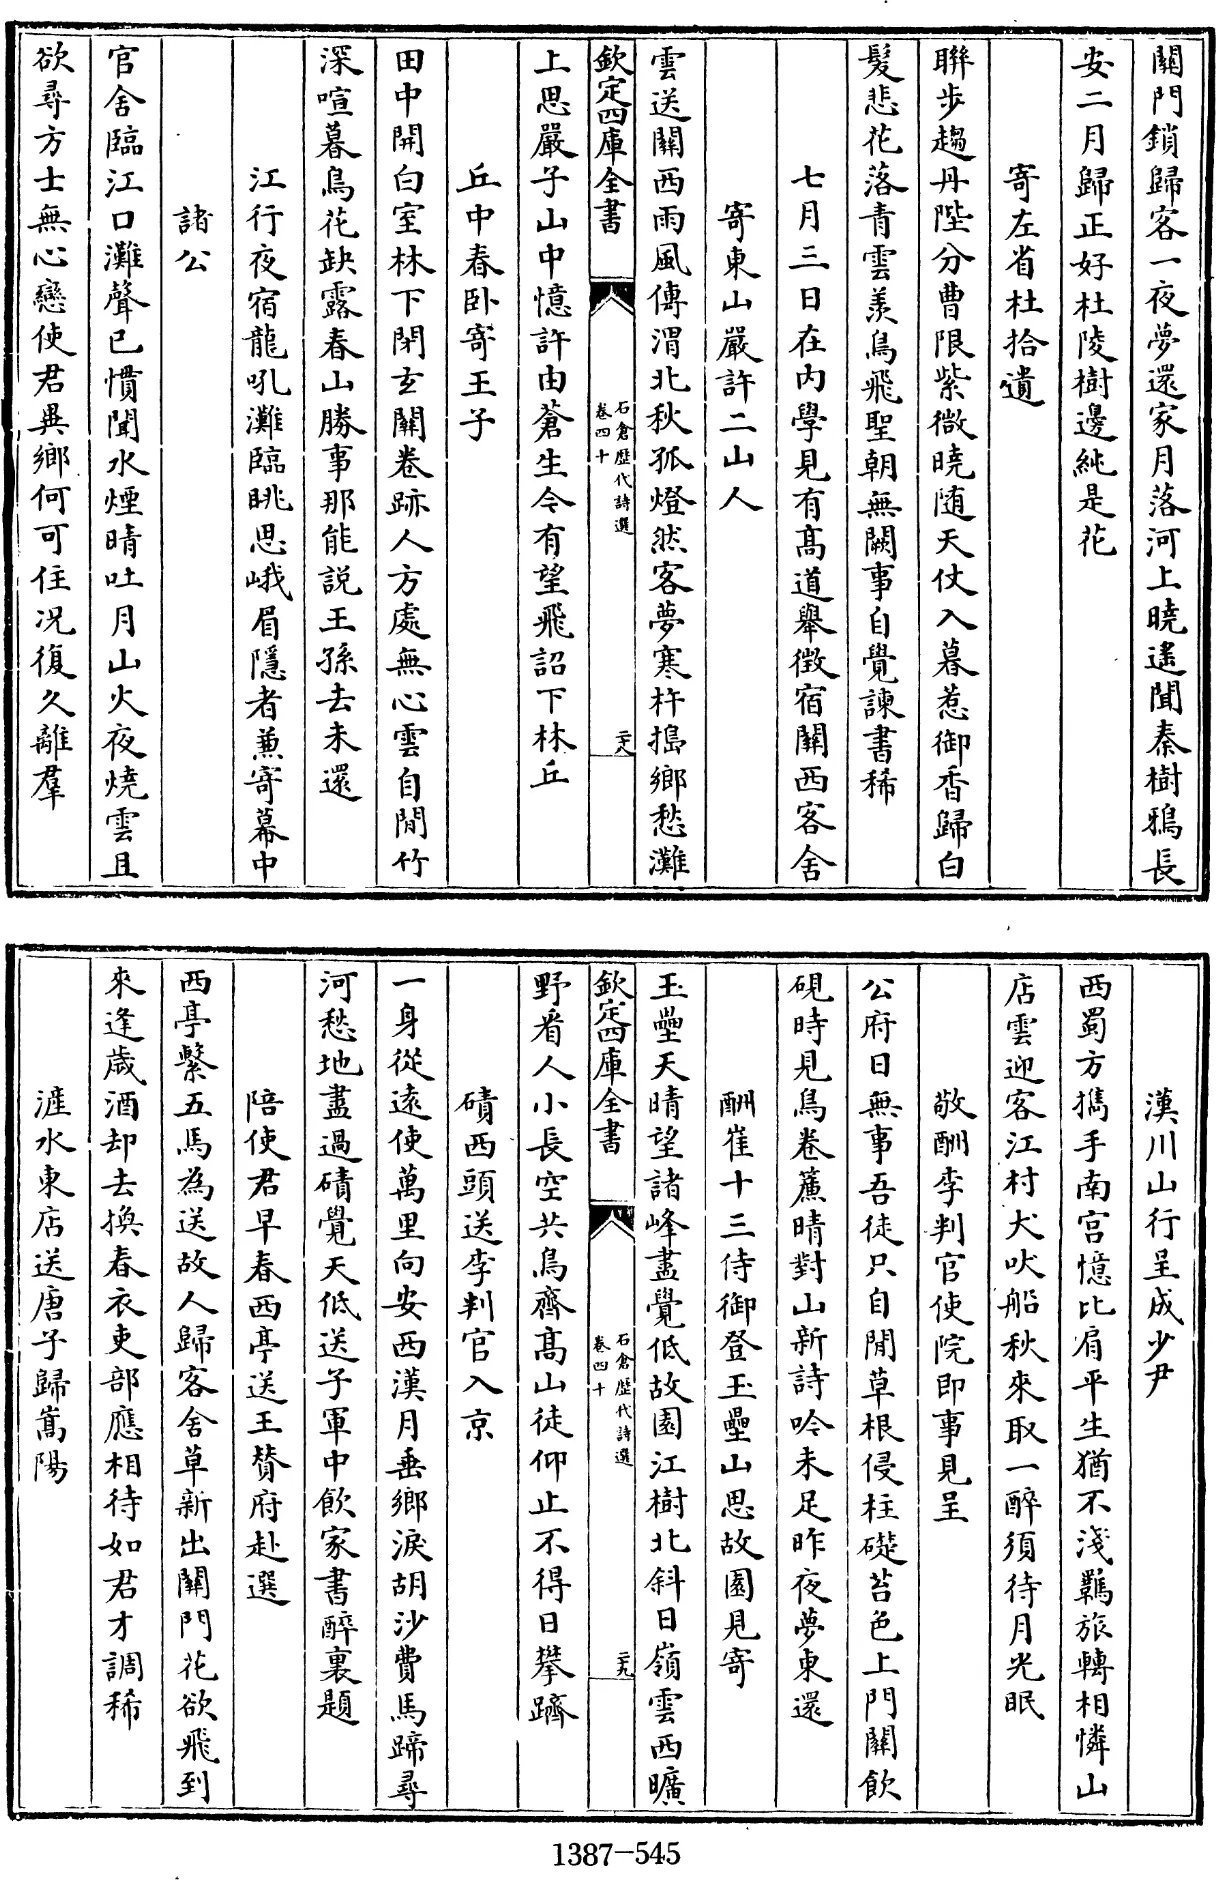 關門鎖歸客一夜夢還家月落河上曉遙聞秦樹鴉長
安二月歸正好杜陵樹邊純是花
寄左省杜拾遺
聨步趨丹陛分曹限紫微曉随天仗入暮惹御香歸白
髮悲花落青雲羨鳥飛聖朝無闕事自覺諫書稀
七月三日在内學見有髙道舉徴宿關西客舎
寄東山嚴許二山人
雲送關西雨風傳渭北秋孤燈然客夢寒杵搗鄉愁灘
欽定四庫全書
石倉歷代詩選
卷四十
二十八
上思嚴子山中憶許由蒼生今有望飛詔下林丘
丘中春卧寄王子
田中開白室林下閉玄關卷跡人方處無心雲自閒竹
深喧暮鳥花缺露春山勝事那能説王孫去未還
江行夜宿龍吼灘臨眺思峨眉隱者兼寄幕中
諸公
官舍臨江口灘聲已慣聞水煙晴吐月山火夜燒雲且
欲尋方士無心戀使君異鄉何可住况復久離羣
漢川山行呈成少尹
西蜀方攜手南宫憶比肩平生猶不淺羈旅轉相憐山
店雲迎客江村犬吠船秋來取一醉須待月光眠
敬酬李判官使院即事見呈
公府日無事吾徒只自閒草根侵柱礎苔色上門關飲
硯時見鳥卷簾晴對山新詩吟未足昨夜夢東還
酬崔十三侍御登玉壘山思故園見寄
玉壘天晴望諸峰盡覺低故園江樹北斜日嶺雲西曠
欽定四庫全書
石倉歷代詩選
卷四十
二十九
野看人小長空共鳥齊髙山徒仰止不得日攀躋
磧西頭送李判官入京
一身從逺使萬里向安西漢月垂鄉淚胡沙費馬蹄尋
河愁地盡過磧覺天低送子軍中飲家書醉裏題
陪使君早春西亭送王賛府赴選
西亭繫五馬為送故人歸客舍草新出關門花欲飛到
來逢歲酒却去換春衣吏部應相待如君才調稀
滻水東店送唐子歸嵩陽
1387-545